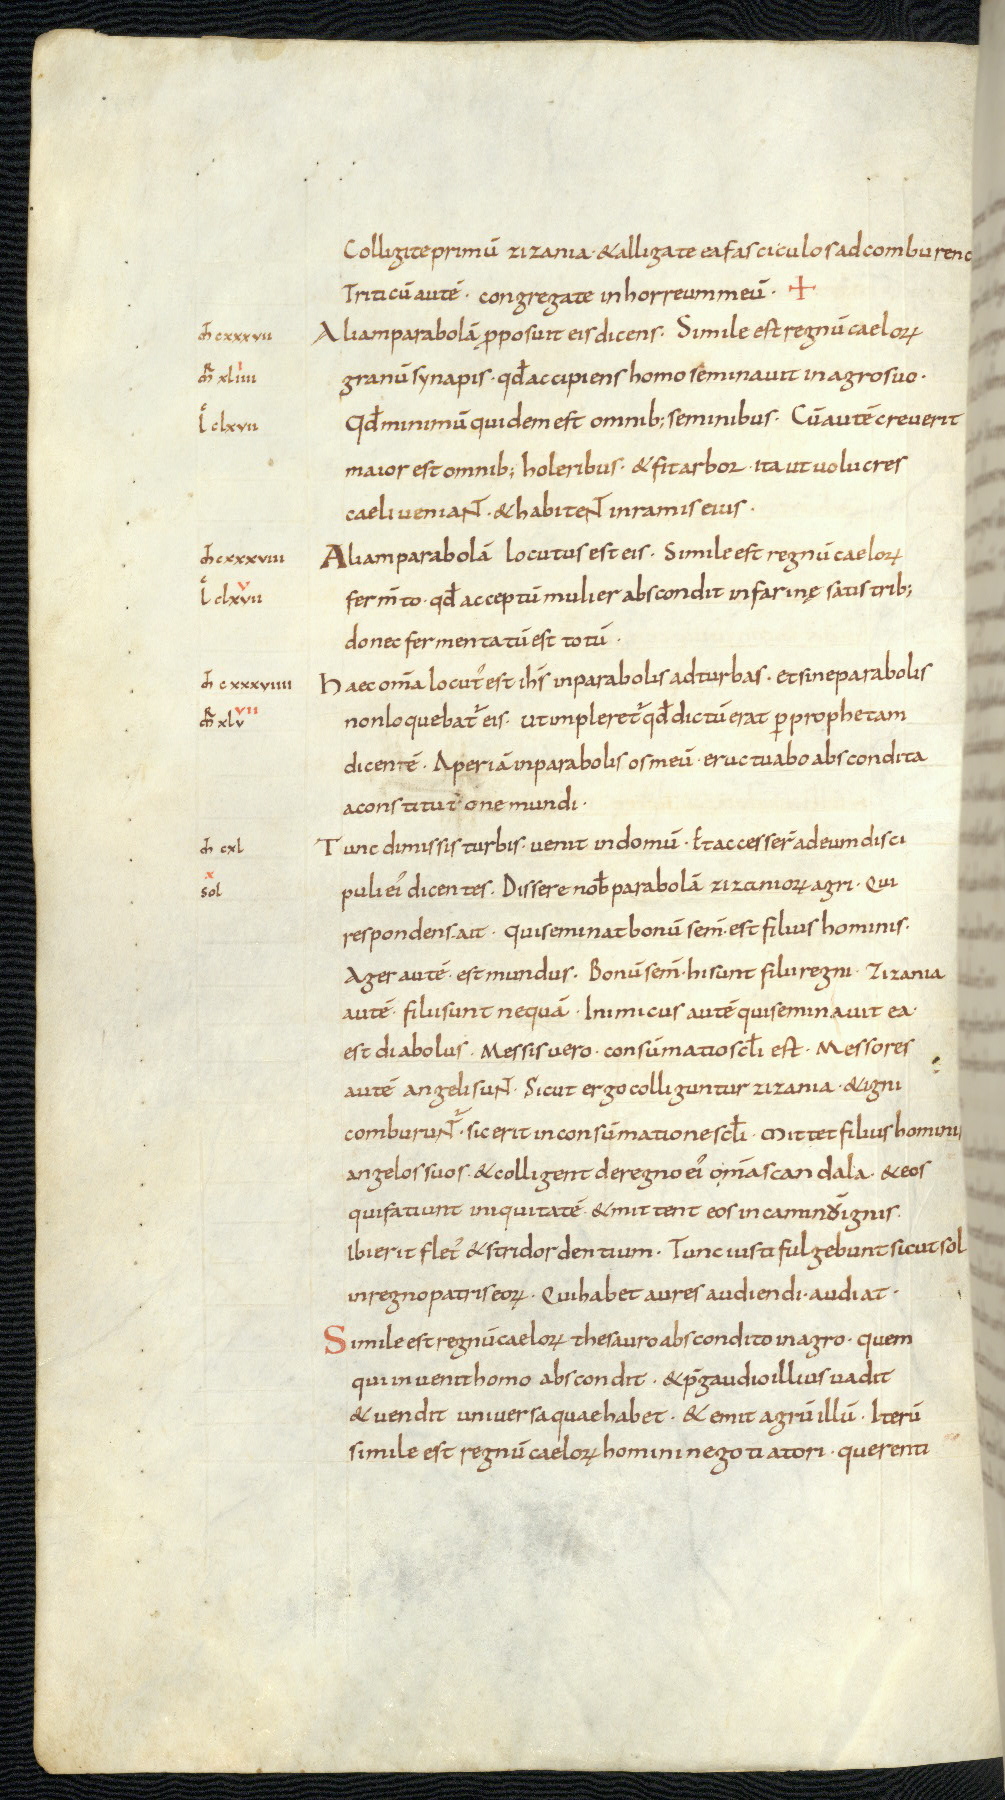 Colligite primū zizania · & alligate ea fasciculos ad comburenđ
Triticū autē · congregate in horreum meū · +
m̄ cxxxvii Aliam parabolā p̱posuit eis dicens · Simile est regnū caeloꝝ
m̄r xliiii granū synapis · qđ accipiens homo seminavit in agro suo ·
l clxvii Qđ minimū quidem est omnib; seminibus · Cū autē creverit
maior est omnib; holeribus · & fit arbor · ita ut volucres
caeli veniaNT · & habiteNT in ramis eius ·
m̄ cxxxviii Aliam parabolā locutus est eis · Simile est regnū caeloꝝ
l clxvii v ferm̄to · qđ acceptū mulier abscondit in farinę satis trib;
donec fermentatū est totū ·
m̄ cxxxviiii Haec om̄a locut᾽ est ihs̄ in parabolis ad turbas · et sine parabolis
m̄r xlv vii non loquebat᾽ eis · ut impleret᾽ qđ dictū erat ꝑ prophetam
dicentē · Aperiā in parabolis os meū · eructuabo abscondita
a constitutione mundi ·
m̄ cxl Tunc dimissis turbis · venit in domū · Et accesser̄ ad eum disci
x sol puli ei᾽ dicentes · Dissere nob̄ parabolā zizanioꝝ agri · Qui
respondens · ait · qui seminat bonū sem̄ · est filius hominis ·
Ager autē · est mundus · Bonū sem̄ · hi sunt filii regni · Zizania
autē · filii sunt nequā · Inimicus autē qui seminavit ea ·
est diabolus · Messis vero · consūmatio scl̄i est · Messores
autē angeli suNT · Sicut ergo colliguntur zizania · & igni
comburuNT᾽ · sic erit in consūmatione scl̄i · Mittet filius hominis
angelos suos · & colligent de regno ei᾽ om̄a scandala · & eos
qui fatiunt iniquitatē · & mittent eos in caminū ignis ·
Ibi erit flet᾽ & stridor dentium · Tunc iusti fulgebunt sicut sol
in regno patris eoꝝ · Qui habet aures audiendi · audiat ·
Simile est regnū caeloꝝ thesauro abscondito in agro · quem
qui invenit homo abscondit · & p̄ gaudio illius vadit
& vendit universa quae habet · & emit agrū illū · Iterū
simile est regnū caeloꝝ homini negotiatori · querenti